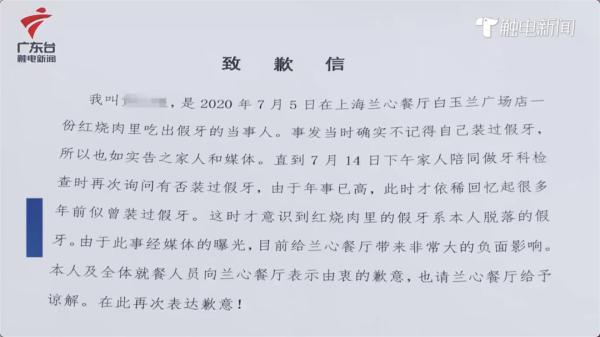 广东台
触电新闻
触电新闻
致歉信
我叫，是 2020 年 7 月 5 日在上海兰心餐厅白玉兰广场店一
份红烧肉里吃出假牙的当事人。事发当时确实不记得自己装过假牙，
所以也如实告之家人和媒体。直到 7 月 14 日下午家人陪同做牙科检
查时再次询问有否装过假牙，由于年事已高，此时才依稀回忆起很多
年前似曾装过假牙。这时才意识到红烧肉里的假牙系本人脱落的假
牙。由于此事经媒体的曝光，目前给兰心餐厅带来非常大的负面影响。
本人及全体就餐人员向兰心餐厅表示由衷的歉意，也请兰心餐厅给予
谅解。在此再次表达歉意！